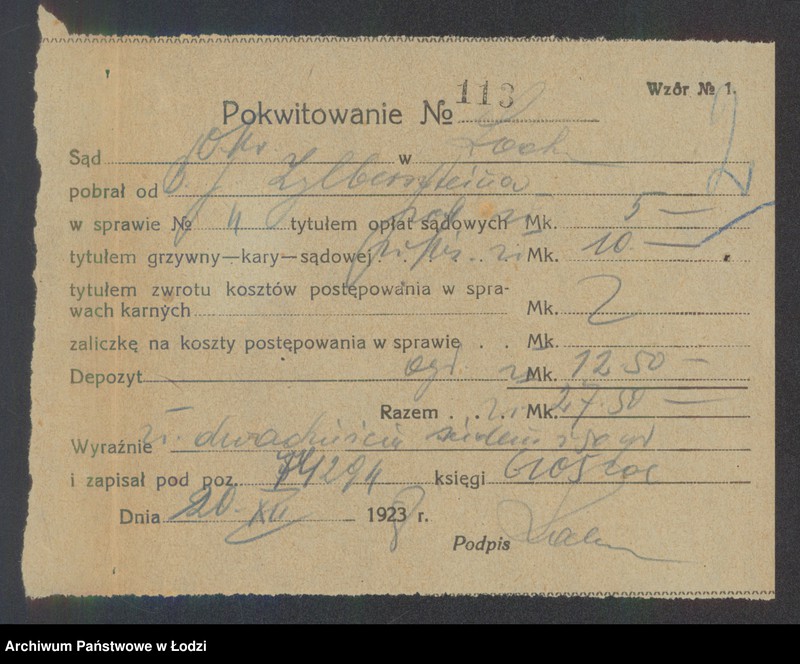 Wzór № 1.
Pokwitowanie № 113
Sąd Okr. w Łodzi
pobrał od Zylbersztejna
w sprawie № tytułem opłat sądowych Mk. 5 —
tytułem grzywny—kary—sądowej . . . . zł Mk. 10 —
tytułem zwrotu kosztów postępowania w spra-
wach karnych Mk.
zaliczkę na koszty postępowania w sprawie . . Mk.
Depozyt ogł. zł Mk. 12.50 —
Razem . . . zł Mk. 27.50 —
Wyraźnie zł. dwadzieścia siedem i 50 gr
i zapisał pod poz. księgi
Dnia 20 XII 1923 8 r.
Podpis
Archiwum Państwowe w Łodzi